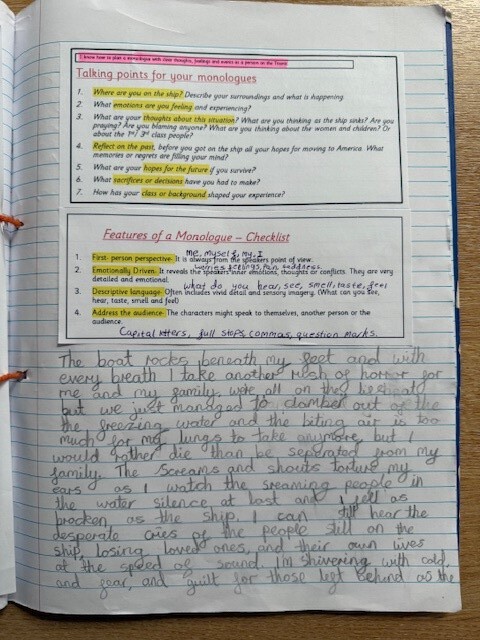 I know how to plan a monologue with clear thoughts, feelings and events of a person on the Titanic
Talking points for your monologues
1. Where are you on the ship? Describe your surroundings and what is happening.
2. What emotions are you feeling and experiencing?
3. What are your thoughts about this situation? What are you thinking as the ship sinks? Are you
praying? Are you blaming anyone? What are you thinking about the women and children? Or
about the 1st/ 3rd class people?
4. Reflect on the past, before you got on the ship all your hopes for moving to America. What
memories or regrets are filling your mind?
5. What are your hopes for the future if you survive?
6. What sacrifices or decisions have you had to make?
7. How has your class or background shaped your experience?
Features of a Monologue – Checklist
me, myself, my, I
1. First- person perspective- It is always from the speakers point of view.
worries feelings, pain saddness
2. Emotionally Driven- It reveals the speakers inner emotions, thoughts or conflicts. They are very
detailed and emotional.
what do you hear, see, smell, taste, feel
3. Descriptive language- Often includes vivid detail and sensory imagery. (What can you see,
hear, taste, smell and feel)
4. Address the audience- The characters might speak to themselves, another person or the
audience.
Capital letters, full stops, commas, question marks.
The boat rocks beneath my feet and with
every breath take another rush of horror for
me and my family. were all on the
but we just managed to clamber out of the
the freezing water and the biting air is too
much for my lungs to take anymore, but I
would rather die than be separated from my
family. The screams and shouts torture my
ears as I watch the sreaming people in
the water silence at last and I fell as
brocken as the ship. I can still hear the
desperate cries of the people still on the
ship, losing loved ones, and their own lives
at the speed of sound. I'm shivering with cold,
and fear, and guilt for those left behind as the